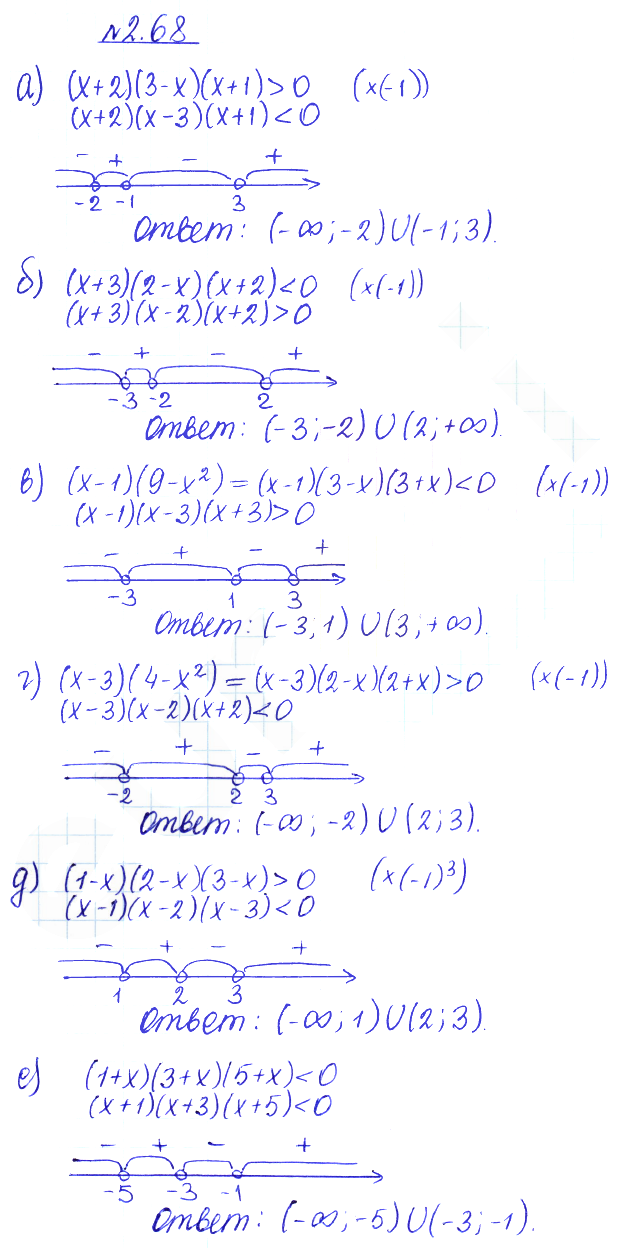 №2.68
а) (x+2)(3-x)(x+1)>0 (x(-1))
(x+2)(x-3)(x+1)<0
- + - +
-2 -1 3
Ответ: (-∞;-2)U(-1;3).
б) (x+3)(2-x)(x+2)<0 (x(-1))
(x+3)(x-2)(x+2)>0
- + - +
-3 -2 2
Ответ: (-3;-2)U(2;+∞).
в) (x-1)(9-x²)=(x-1)(3-x)(3+x)<0 (x(-1))
(x-1)(x-3)(x+3)>0
- + - +
-3 1 3
Ответ: (-3;1)U(3;+∞).
г) (x-3)(4-x²)=(x-3)(2-x)(2+x)>0 (x(-1))
(x-3)(x-2)(x+2)<0
- + - +
-2 2 3
Ответ: (-∞;-2)U(2;3).
д) (1-x)(2-x)(3-x)>0 (x(-1)³)
(x-1)(x-2)(x-3)<0
- + - +
1 2 3
Ответ: (-∞;1)U(2;3).
е) (1+x)(3+x)(5+x)<0
(x+1)(x+3)(x+5)<0
- + - +
-5 -3 -1
Ответ: (-∞;-5)U(-3;-1).